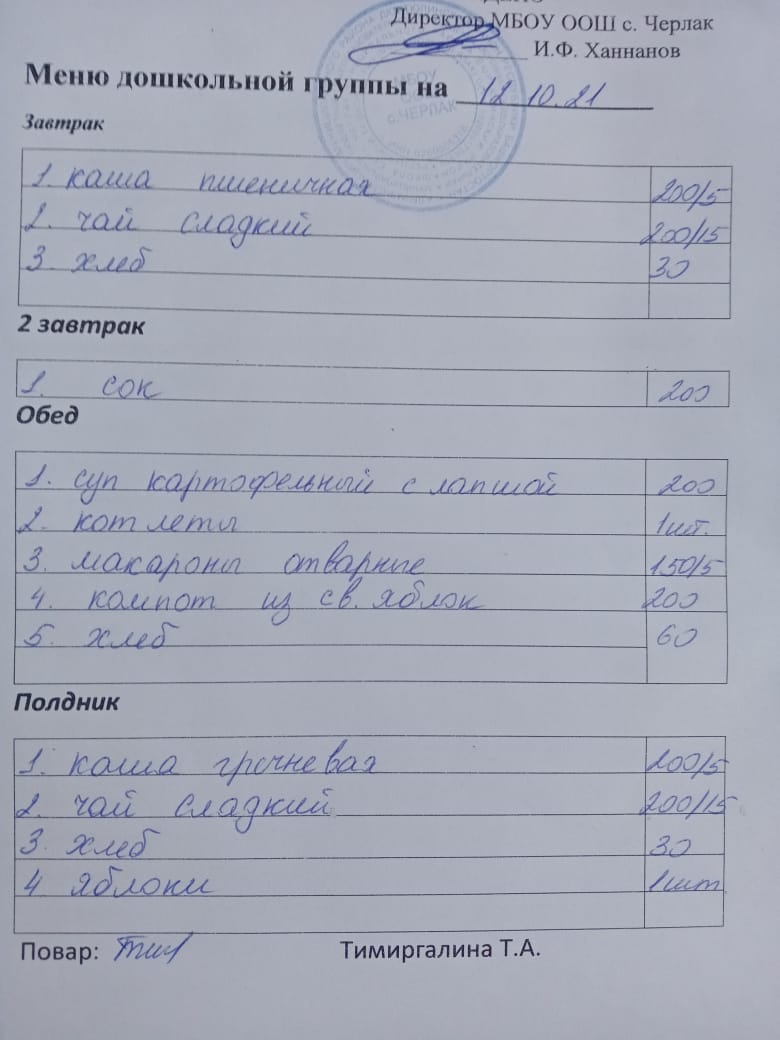 Директор МБОУ ООШ с. Черлак
И.Ф. Ханнанов
Меню дошкольной группы на 12.10.21
МБОУ
с.ЧЕРЛАК
Завтрак
1. каша пшеничная 200/5
2. чай сладкий 200/15
3. хлеб 30
2 завтрак
1. сок 200
Обед
1. суп картофельный с лапшой 200
2. котлеты 1шт.
3. макароны отварные 150/5
4. компот из св. яблок 200
5. хлеб 60
Полдник
1. каша гречневая 200/5
2. чай сладкий 200/15
3. хлеб 30
4 яблоки 1шт
Повар: Тимиргалина Т.А.